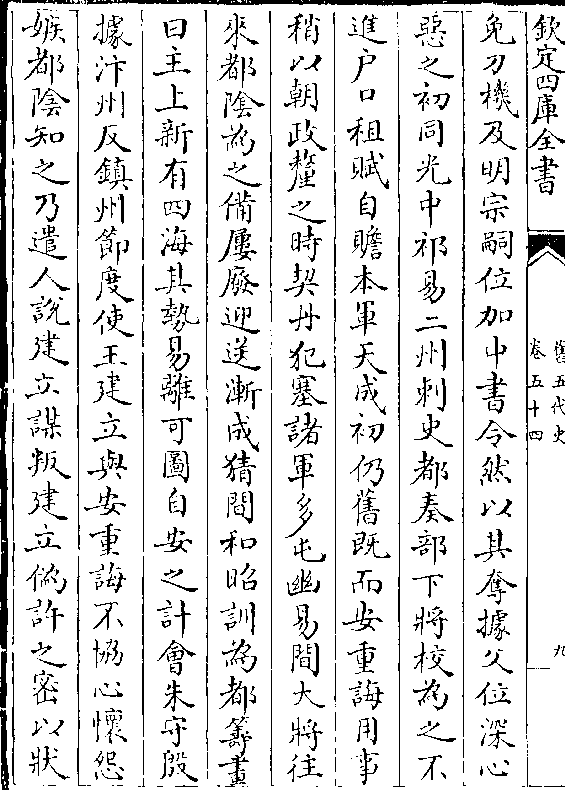 欽定四庫全書
舊五代史
卷五十四
九
免刀機及明宗嗣位加中書令然以其奪據父位深心
惡之初同光中祁易二州刺史都奏部下將校為之不
進户口租賦自贍本軍天成初仍舊既而安重誨用事
稍以朝政釐之時契丹犯塞諸軍多屯幽易間大將往
來都陰為之備屢廢迎送漸成猜間和昭訓為都籌畫
曰主上新有四海其勢易離可圖自安之計會朱守殷
據汴州反鎮州節度使王建立與安重誨不協心懷怨
嫉都陰知之乃遣人說建立謀叛建立偽許之密以狀